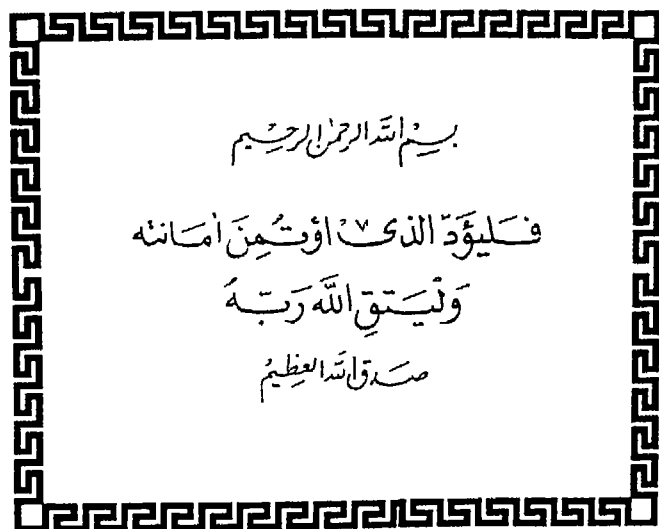 بسم الله الرحمن الرحيم
فَليؤَدّ الذى اؤتُمِنَ امَانته
وَلْيَتقِ اللَّه رَبّهُ
صدق الله العظيم